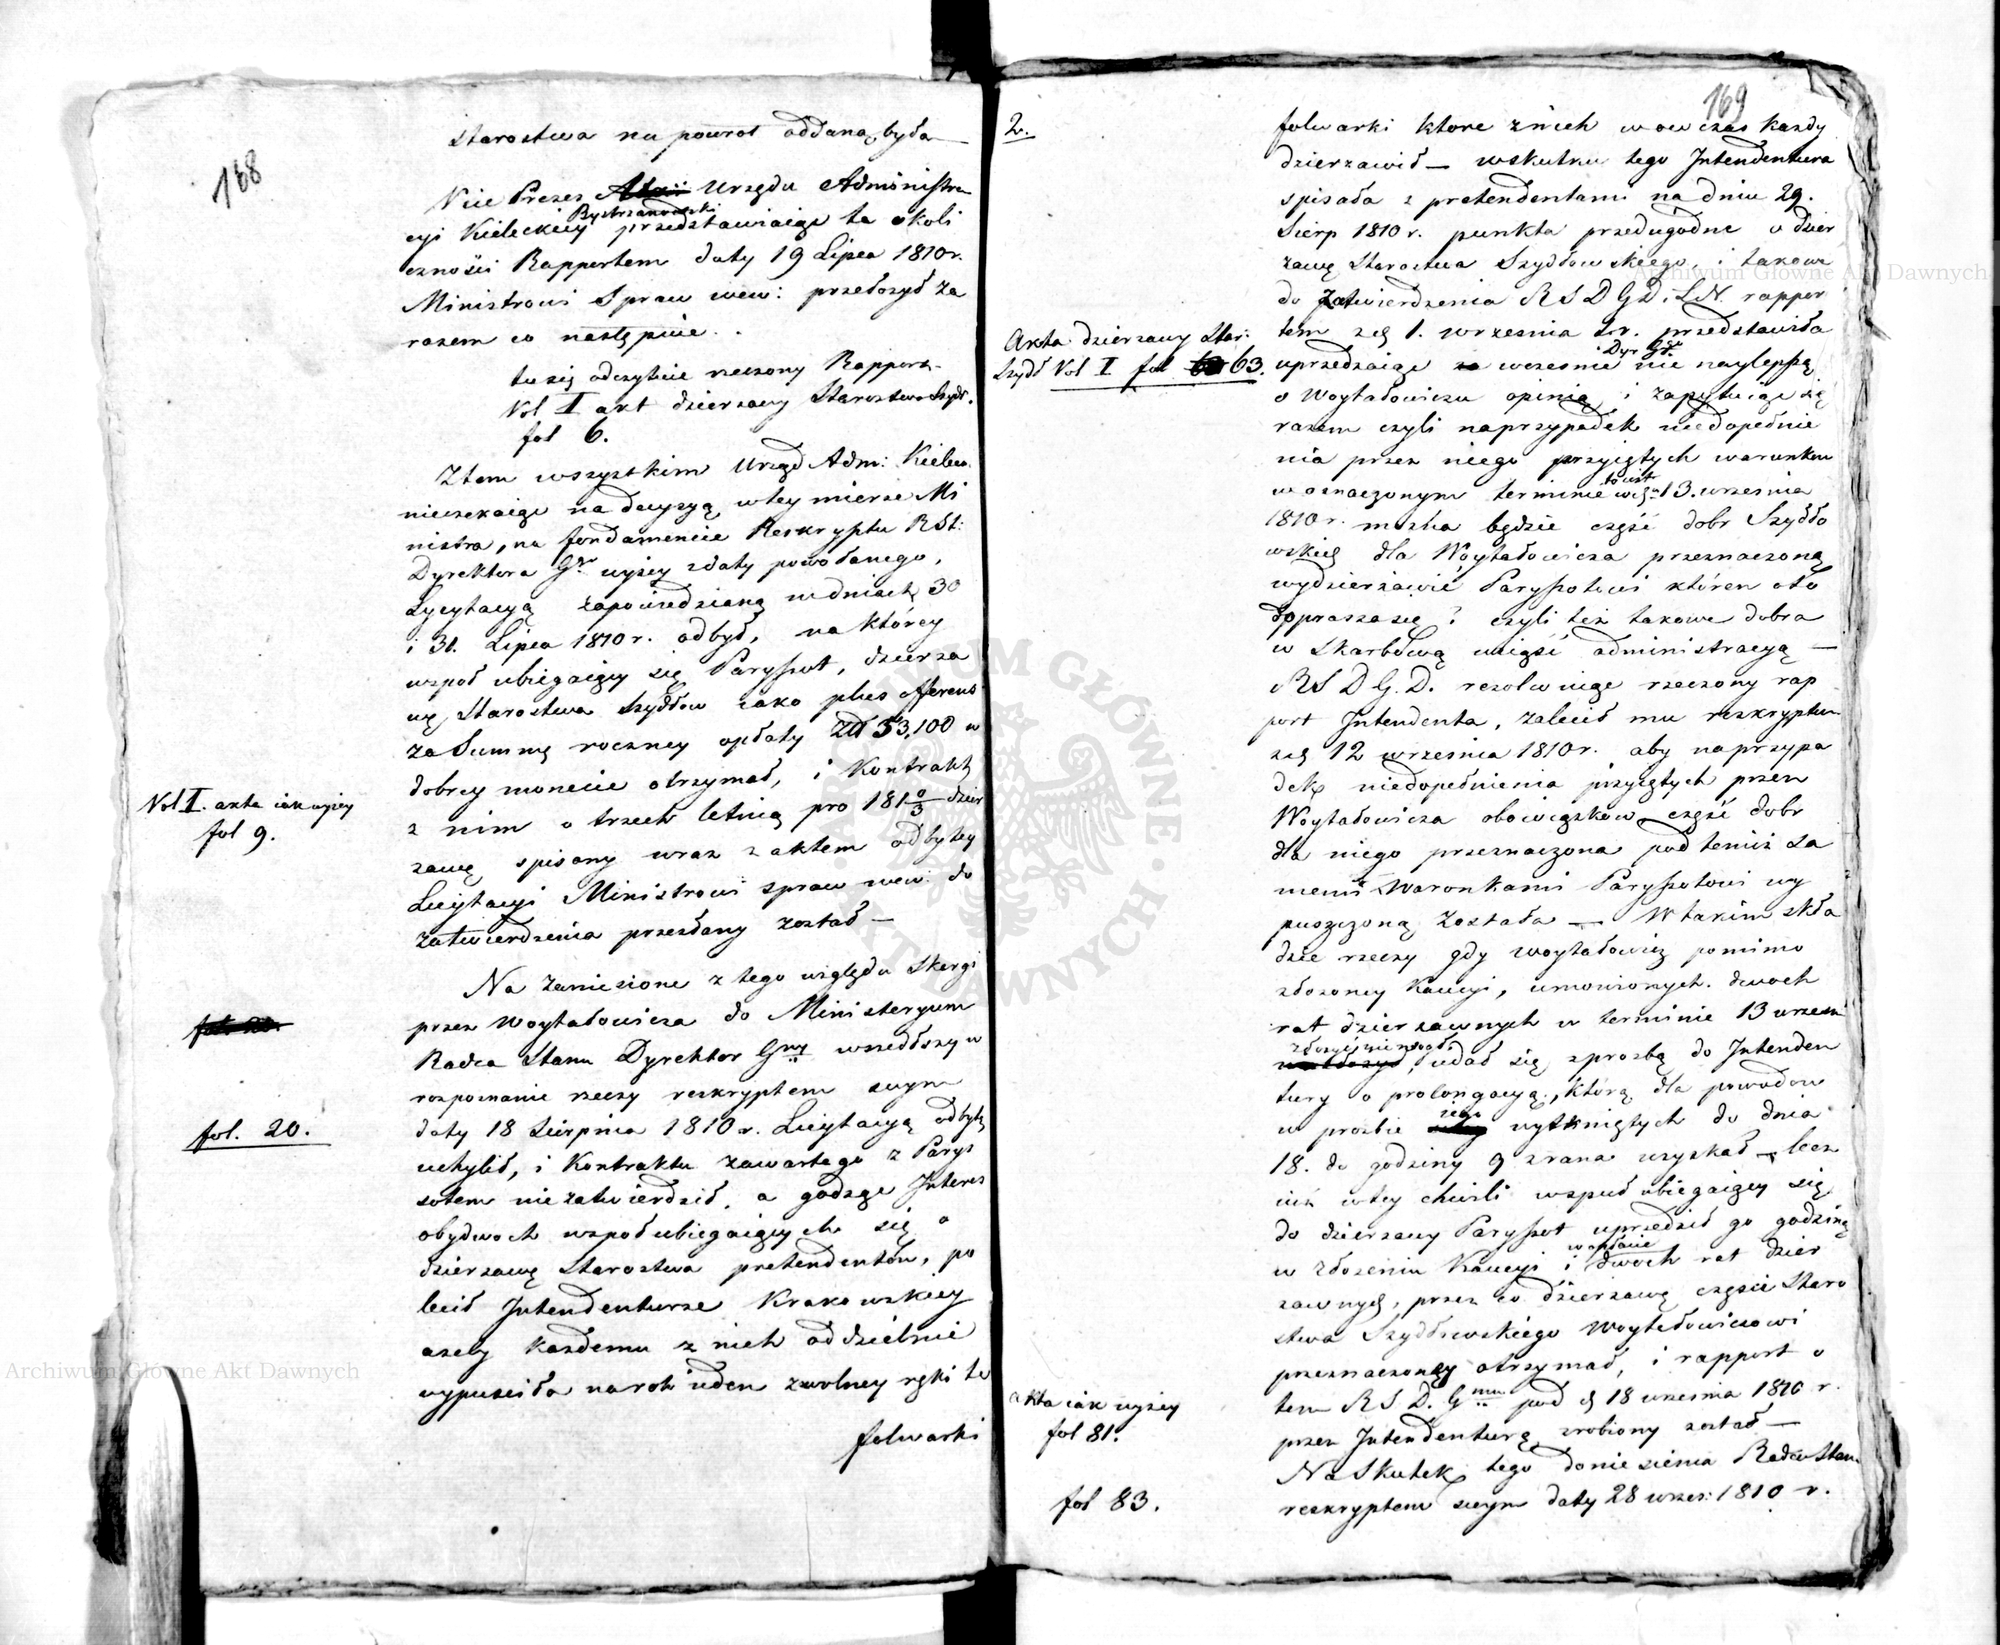 168
starostwa na powrot oddaną była —
Vice Prezes Urzędu Administra
Bystrzanowski
cyi Kieleckiey przedstawiaiąc te okoli
czności Rapportem daty 19 Lipca 1810 r.
Ministrowi Spraw wew: przełożył za
razem co następuie. .
tu się odczytuie rzeczony Rapport.
Vol I akt dzierzawy Starostwa Szydł.
fol 6.
Z tem wszystkim Urząd Adm: Kielec.
nieczekaiąc na decyzyą w tey mierze Mi
nistra, na fondamencie Reskryptu RSt:
Dyrektora Gr wyzey zdaty powołanego,
Lycytacyą zapowiedzianą w dniach 30
i 31. Lipca 1810 r. odbył, na ktorey
wspoł ubiegaiący się Paryssot, dzierza
wę Starostwa Szydłow iako plus offerens
za Summę roczney opłaty zł 53,100 w
dobrey monecie otrzymał, i Kontrakt
z nim o trzech letnią pro 181 0/3 dzier
Vol I. akta iak wyzey
fol 9.
zawę spisany wraz z aktem odbytey
Licytacyi Ministrowi spraw wew: do
zatwierdzenia przesłany został —
Na zaniesione z tego względu Skargi
przez Woytałowicza do Ministeryum
Radca Stanu Dyrektor Gny wszedłszy w
rozpoznanie rzeczy reskryptem swym
daty 18 Sierpnia 1810 r. Licytacyą odbytą
fol. 20.
uchylił, i Kontraktu zawartego z Parys
sotem nie zatwierdził, a godząc Interes
obydwoch wspoł ubiegaiących się o
dzierzawę Starostwa pretendentów, po
lecił Intendenturze Krakowskiey
azeby kazdemu z nich oddzielnie
wypusciła na rok ieden z wolney ręki te
folwarki
169
2.
folwarki ktore z nich wowczas kazdy
dzierzawił — wskutku tego Intendentura
spisała z pretendentami na dniu 29.
Sierp 1810 r. punkta przedugodne o dzier
zawę Starostwa Szydłowskiego, i takowe
do zatwierdzenia R S D G D. i L N. rappor
tem z dą 1. wrzesnia t.r. przedstawiła
Akta dzierzawy Star:
Szydł Vol I fol 63.
uprzedzaiąc wczesnie Dyr Gł. nie naylepszą
o Woytałowiczu opinią i zapytuiąc się
razem czyli na przypadek niedopełnie
nia przez niego przyiętych warunkow
w oznaczonym terminie to iest 13. wrzesnia
1810 r. mozna będzie część dobr Szydło
wskich dla Woytałowicza przeznaczoną
wydzierzawić Paryssotowi któren oto
doprasza się? czyli tez takowe dobra
w Skarbową wziąść administracyą —
R S D G. D. rezolwuiąc rzeczony rap
port Intendenta, zalecił mu reskryptem
z dą 12 wrzesnia 1810 r. aby na przypa
dek niedopełnienia przyiętych przez
Woytałowicza obowiązkow, część dobr
dla niego przeznaczona pod temiz sa
memi warunkami Paryssotowi wy
puszczoną została — W takim skła
dzie rzeczy gdy Woytałowicz pomimo
złozoney Kaucyi, umowionych dwoch
rat dzierzawnych w terminie 13 wrzesń
złozyć nie mogł, udał się z prozbą do Intenden
tury o prolongacyą, którą dla powodow
w prozbie iego wytkniętych do dnia
18. do godziny 9 zrana uzyskał — lecz
iuz w tey chwili wspuł ubiegaiący się
do dzierzawy Paryssot uprzedził go godziną
w złozeniu Kaucyi i w opłacie dwoch rat dzier
zawnych, przez co dzierzawę częscie Staro
stwa Szydłowskiego Woytałowiczowi
przeznaczoney otrzymał, i rapport o
tem R S D. Gmu pod d 18 wrzesnia 1810 r.
akta iak wyzey
fol 81.
przez Intendenturą zrobiony został —
Na Skutek tego doniesienia Radca Stanu
fol 83.
reskryptem swym daty 28 wrzes: 1810 r.
Archiwum Główne Akt Dawnych
Archiwum Główne Akt Dawnych
ARCHIWUM GŁÓWNE AKT DAWNYCH